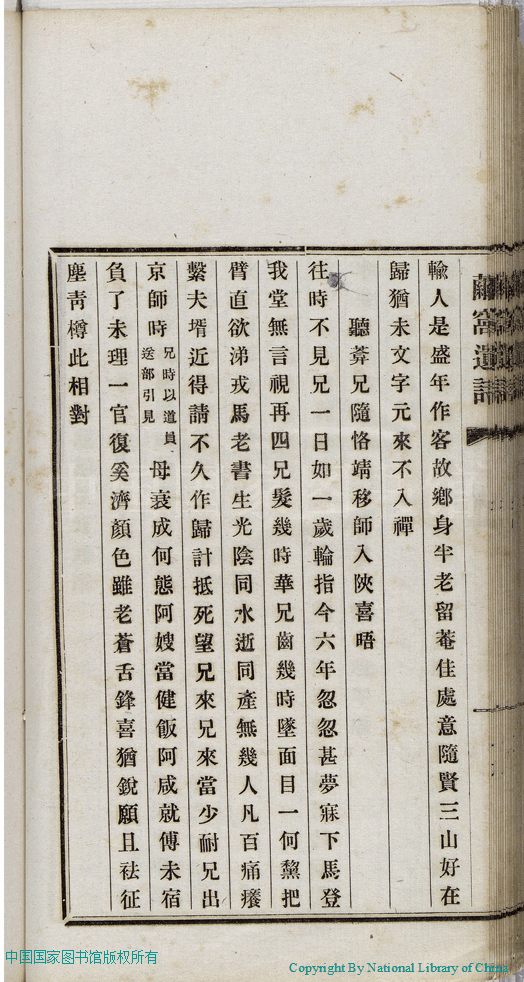 輸人是盛年作客故鄉身半老留菴佳處意隨賢三山好在
歸猶未文字元來不入禪
聽葊兄隨恪靖移師入陝喜晤
往時不見兄一日如一歲輪指今六年忽忽甚夢寐下馬登
我堂無言視再四兄髮幾時華兄齒幾時墜面目一何黧把
臂直欲涕戎馬老書生光陰同水逝同產無幾人凡百痛癢
繫夫壻近得請不久作歸計抵死望兄來兄來當少耐兄出
京師時兄時以道員送部引見母衰成何態阿嫂當健飯阿咸就傅未宿
負了未理一官復奚濟顏色雖老蒼舌鋒喜猶銳願且祛征
塵靑樽此相對
窩遺詩
中国国家图书馆版权所有
Copyright By National Library of China